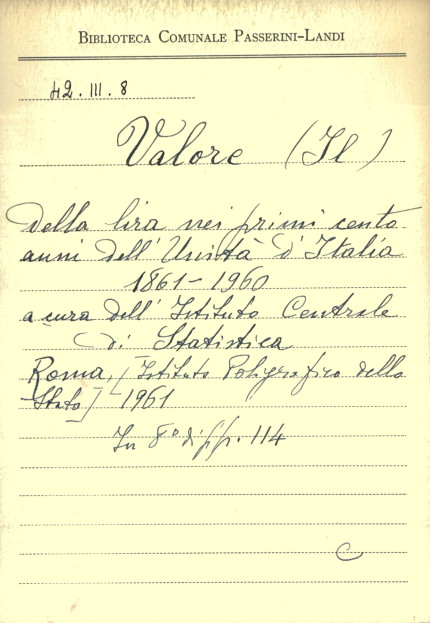 BIBLIOTECA COMUNALE PASSERINI-LANDI
42.III.8
Valore (Il)
della lira nei primi cento
anni dell'Unità d'Italia
1861-1960
a cura dell'Istituto Centrale
di Statistica
Roma, [Istituto Poligrafico dello
Stato] 1961
In 8° di pp. 114
C